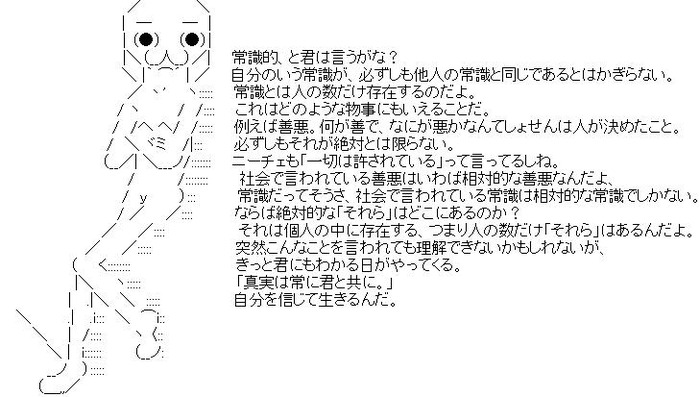 常識的、と君は言うがな？
自分のいう常識が、必ずしも他人の常識と同じであるとはかぎらない。
常識とは人の数だけ存在するのだよ。
これはどのような物事にもいえることだ。
例えば善悪。何が善で、なにが悪かなんてしょせんは人が決めたこと。
必ずしもそれが絶対とは限らない。
ニーチェも「一切は許されている」って言ってるしね。
社会で言われている善悪はいわば相対的な善悪なんだよ、
常識だってそうさ、社会で言われている常識は相対的な常識でしかない。
ならば絶対的な「それら」はどこにあるのか？
それは個人の中に存在する、つまり人の数だけ「それら」はあるんだよ。
突然こんなことを言われても理解できないかもしれないが、
きっと君にもわかる日がやってくる。
「真実は常に君と共に。」
自分を信じて生きるんだ。